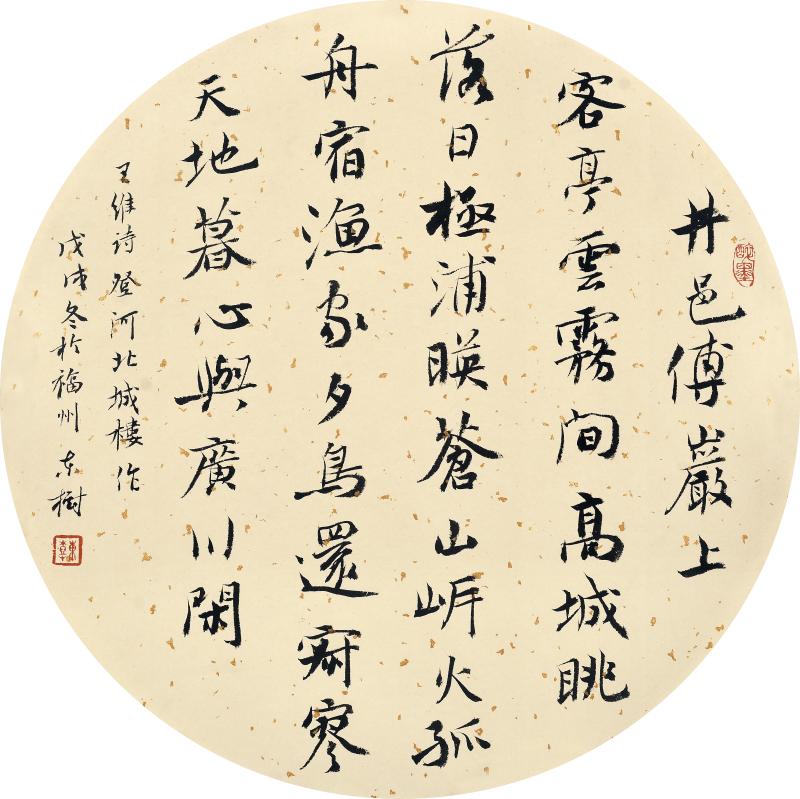 井邑傅巖上
客亭雲霧間高城眺
落日極浦暎蒼山岸火孤
舟宿漁家夕鳥還寂寥
天地暮心與廣川閑
王維诗登河北城樓作
戊戌冬於福州东樹